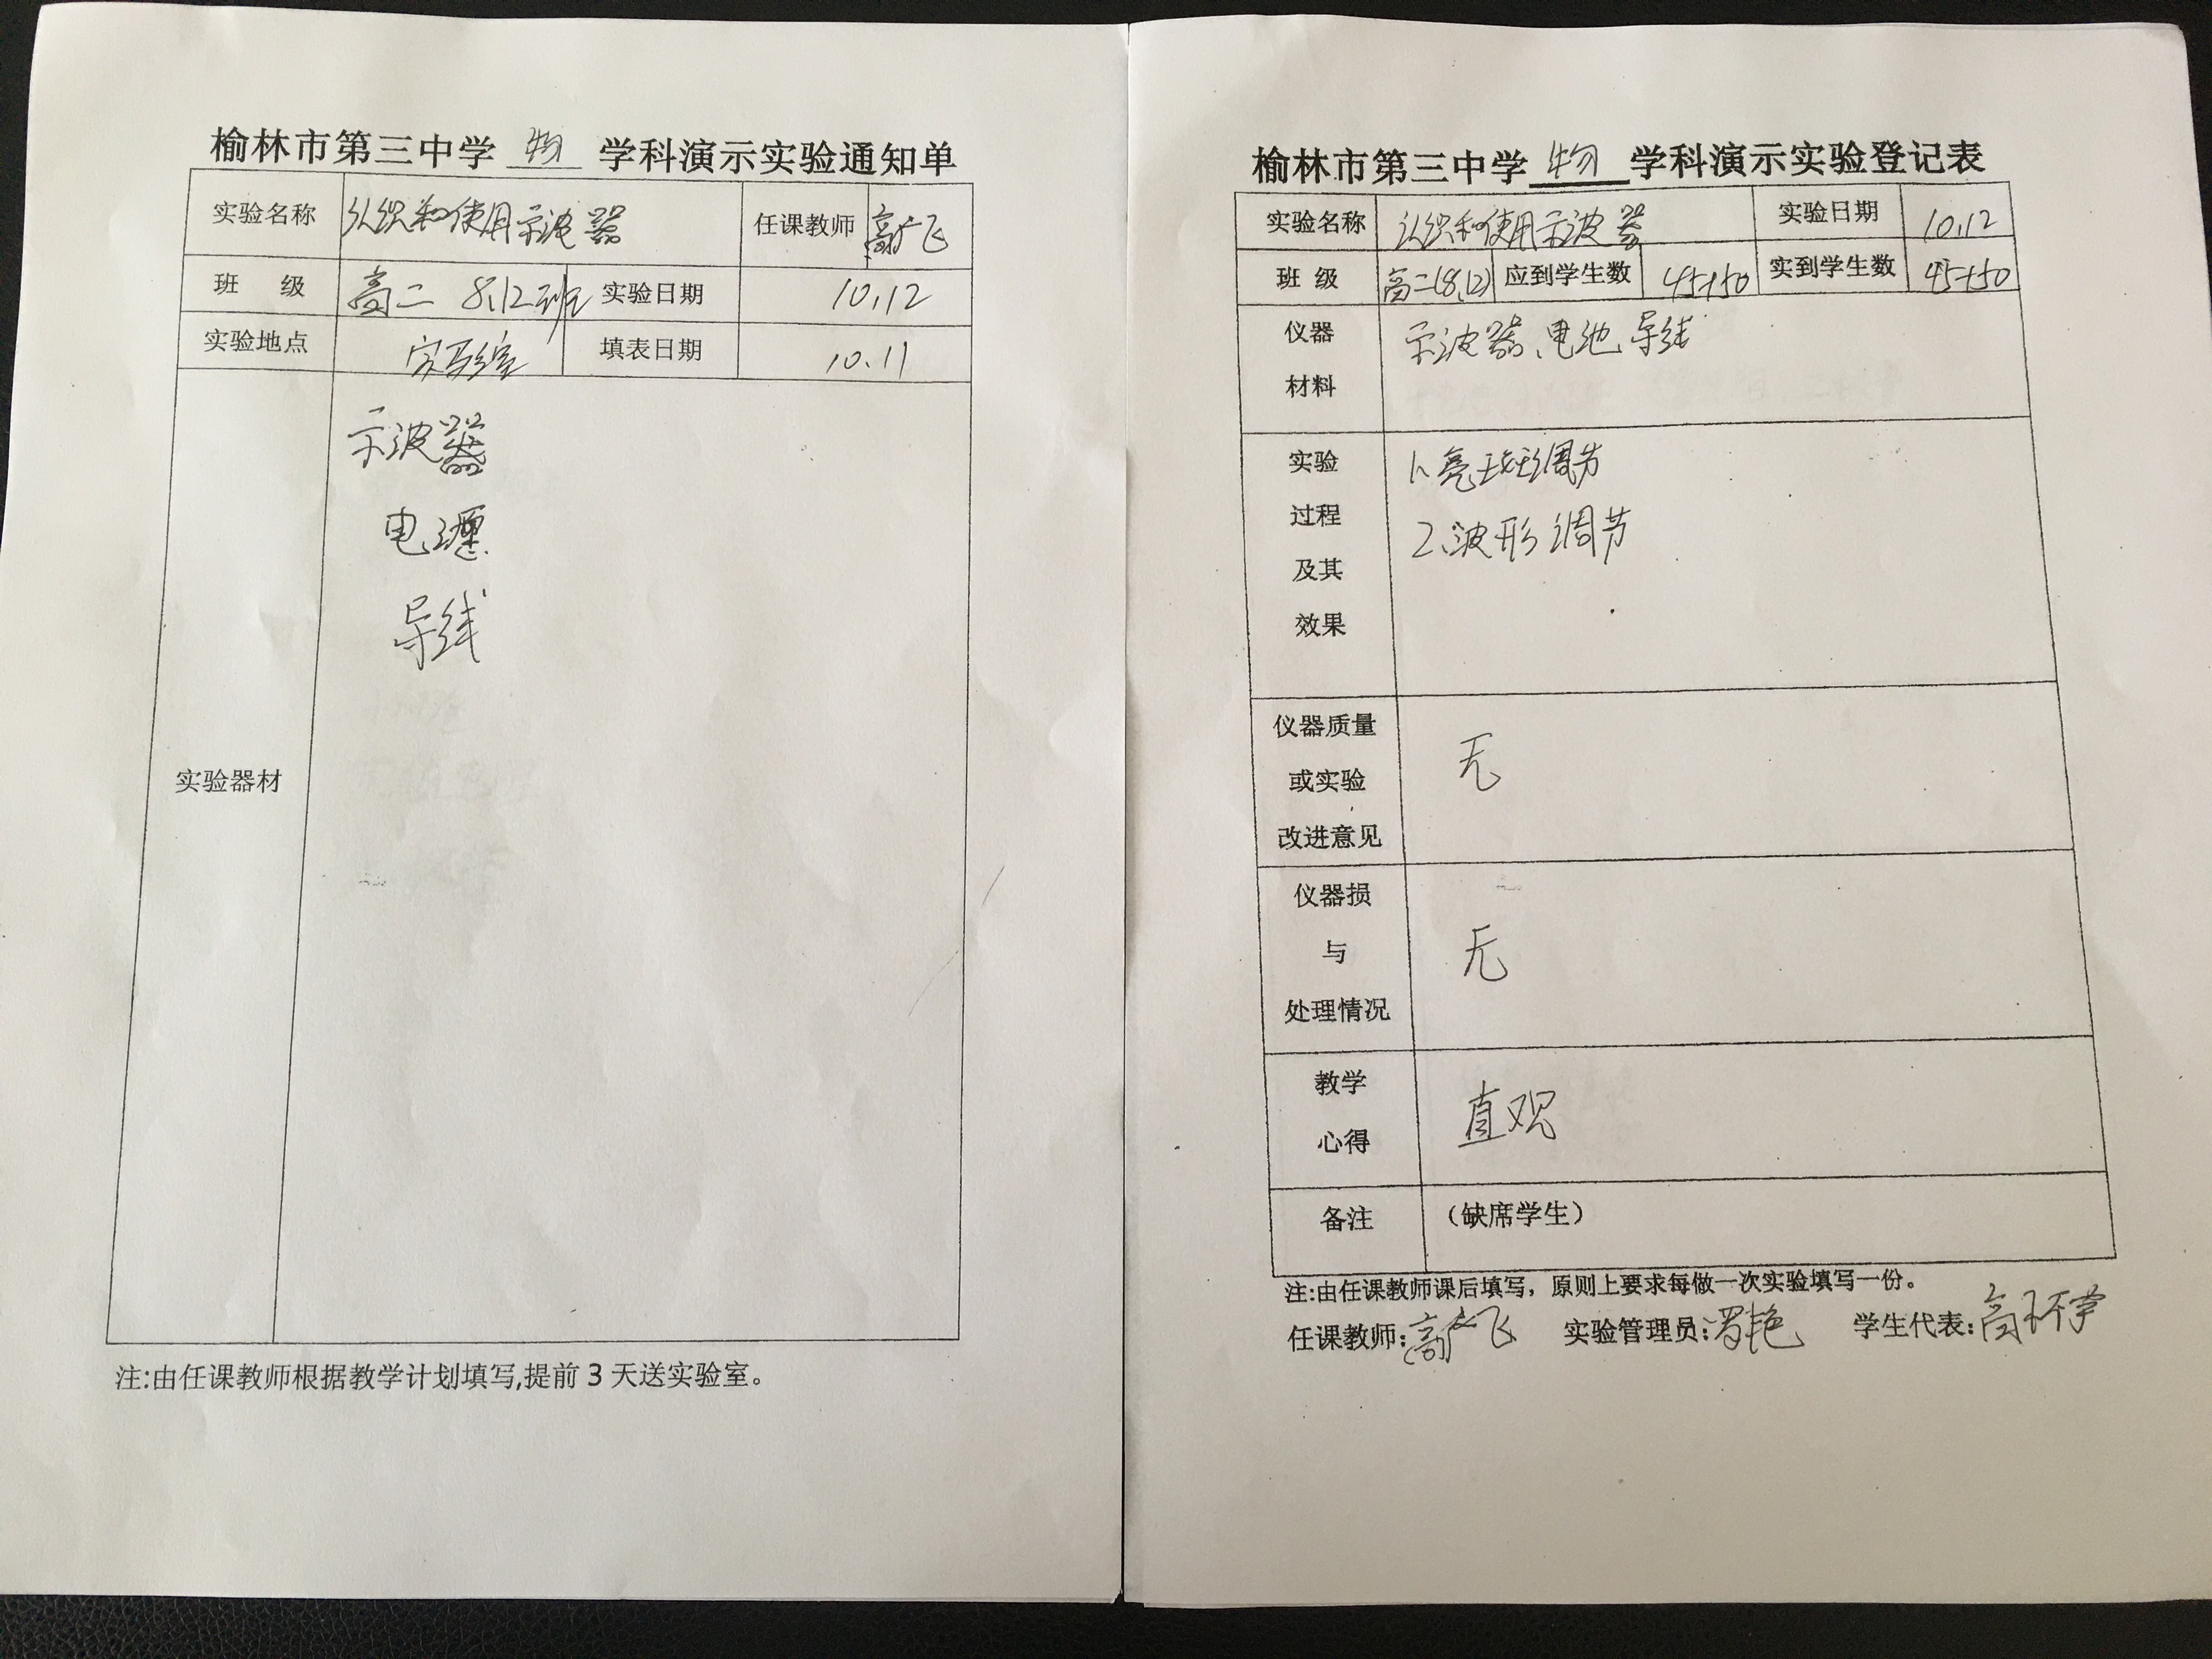 榆林市第三中学 物 学科演示实验通知单
实验名称 认识和使用示波器 任课教师 高广飞
班 级 高二 8,12班 实验日期 10.12
实验地点 实验室 填表日期 10.11
实验器材
示波器
电源
导线
注:由任课教师根据教学计划填写,提前3天送实验室。
榆林市第三中学 物 学科演示实验登记表
实验名称 认识和使用示波器 实验日期 10.12
班 级 高二(8,12) 应到学生数 45+50 实到学生数 45+50
仪器
材料
示波器、电池、导线
实验
过程
及其
效果
1、亮斑调节
2、波形调节
仪器质量
或实验
改进意见
无
仪器损
与
处理情况
无
教学
心得
直观
备注 （缺席学生）
注:由任课教师课后填写，原则上要求每做一次实验填写一份。
任课教师:高广飞 实验管理员:罗艳 学生代表:高